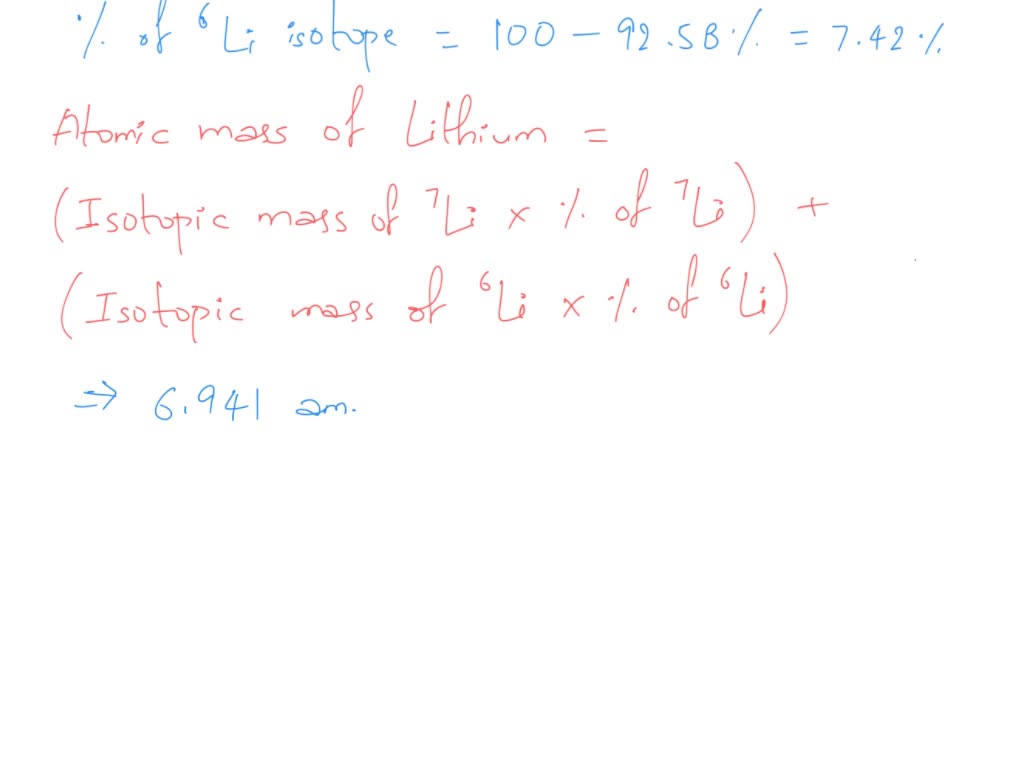 % of ⁶Li isotope = 100 - 92.58% = 7.42%
Atomic mass of Lithium =
(Isotopic mass of ⁷Li x % of ⁷Li) +
(Isotopic mass of ⁶Li x % of ⁶Li)
⇒ 6.941 am.